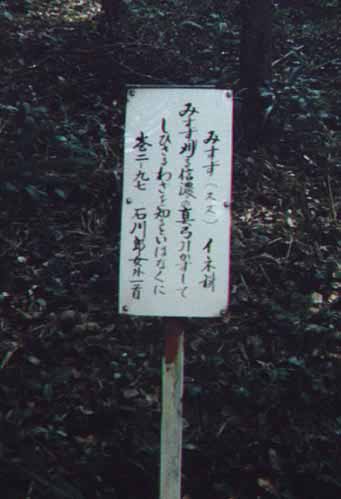 みすず（スズ） イネ科
みすず刈る信濃の真弓引かずして
しひさるわざを知るといはなくに
巻二－九七 石川郎女外一首